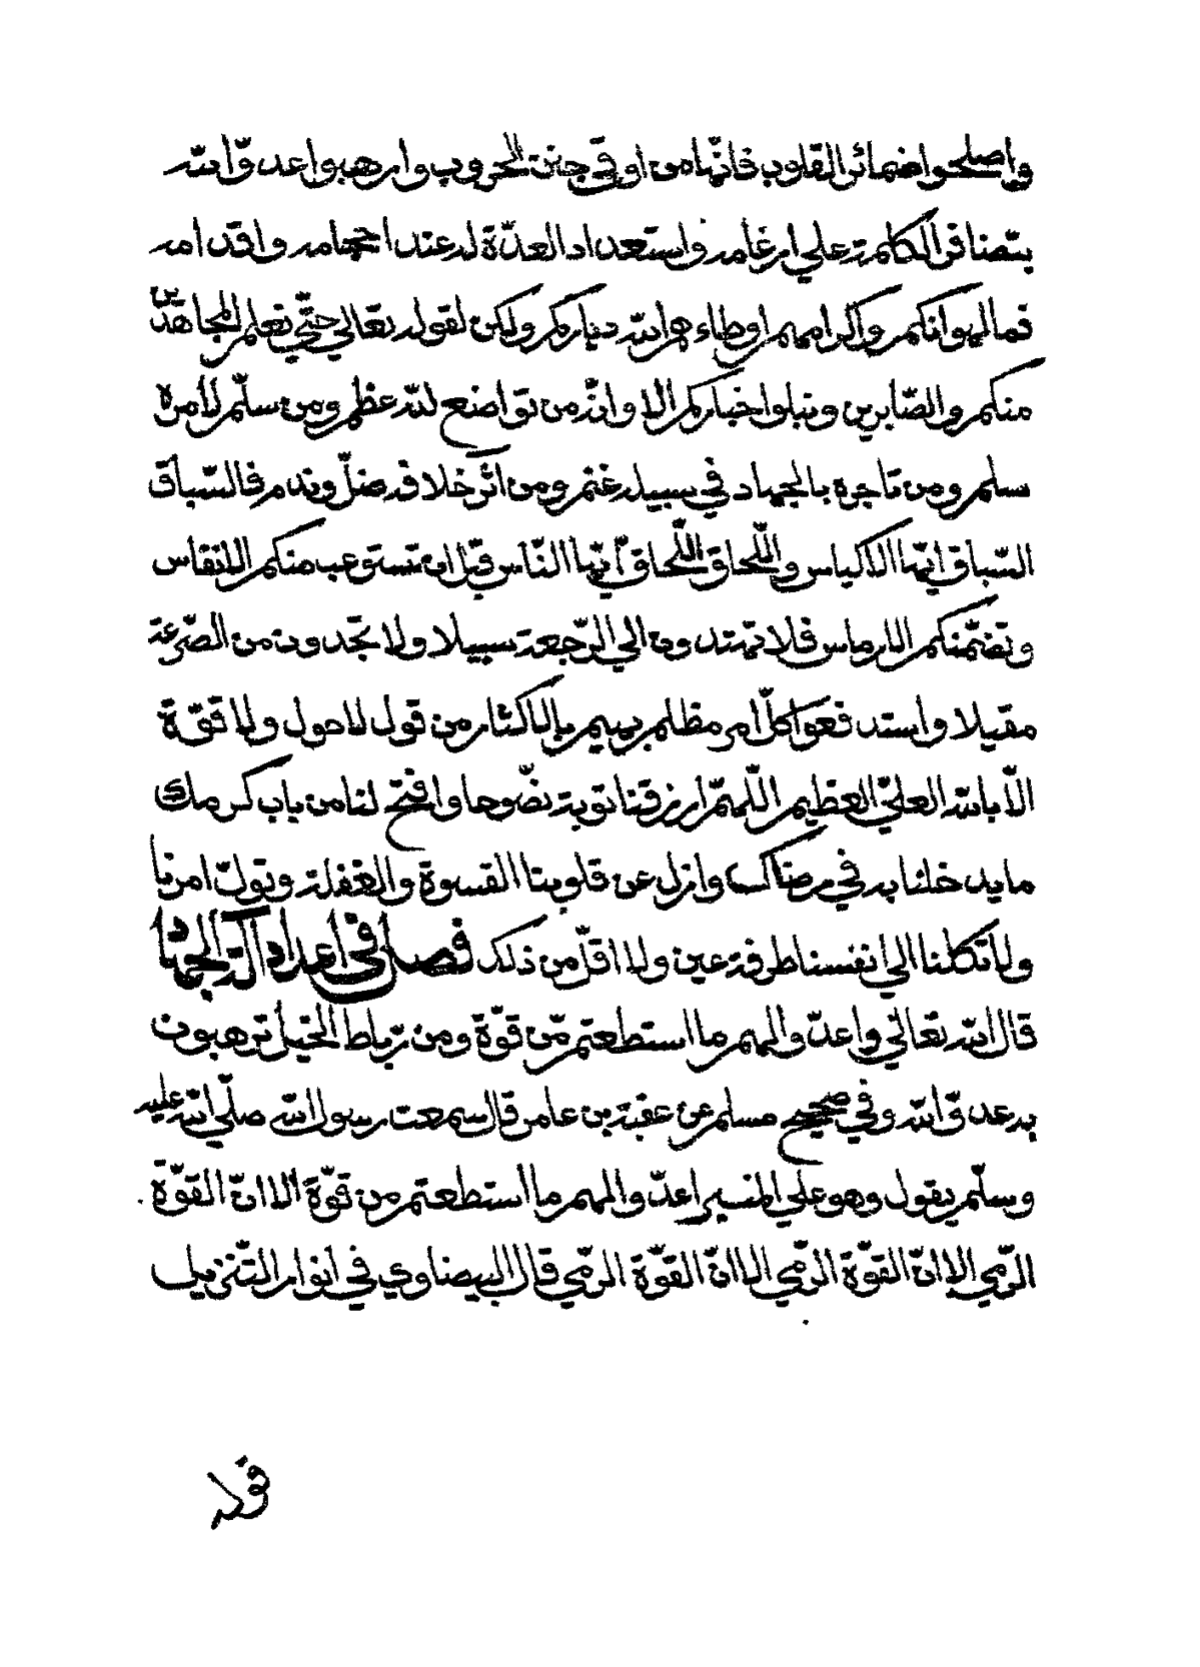 واصلحوا ضمائر القلوب فانّها من اوقي جنن الحروب وارهبوا عدوّ الله
بتضافر الكلمة علي ارغامه واستعداد العدّة له عند احجامه واقدامه
فما لهوانكم واكرامهم اوطاءهم الله دياركم ولكن لقوله تعالي حتّي نعلم المجاهدين
منكم والصّابرين ونبلوا خباركم الا وانّه من تواضع لله عظم ومن سلّم لأمره
سلم ومن تاجره بالجهاد في سبيله غنم ومن اثر خلافه ضلّ وندم فالسّباق
السّباق ايّها الأكياس واللّحاق اللّحاق أيّها النّاس قبل ان تستوعب منكم الانفاس
وتضمّنكم الارماس فلا تهتدون الي الرّجعة سبيلا ولا تجدون من الصّرعة
مقيلا واستدفعوا كلّ امر مظلم بهيم بالاكثار من قول لا حول ولا قوّة
الّا بالله العليّ العظيم اللّهمّ ارزقنا توبة نضّوحا وافتح لنا من باب كرمك
ما يدخلنا به في رضاك وازل عن قلوبنا القسوة والغفلة وتولّ امرنا
ولا تكلنا الي انفسنا طرفة عين ولا اقلّ من ذلك فصل في اعداد آلة الجهاد
قال الله تعالي واعدّوا لهم ما استطعتم مّن قوّة ومن رّباط الخيل ترهبون
به عدوّ الله وفي صحيح مسلم عن عقبة بن عامر قال سمعت رسول الله صلّي الله عليه
وسلّم يقول وهو علي المنبر اعدّوا لهم ما استطعتم من قوّة الا انّ القوّة
الرّمي الا انّ القوّة الرّمي الا انّ القوّة الرّمي قال البيضاوي في انوار التّنزيل
قوله